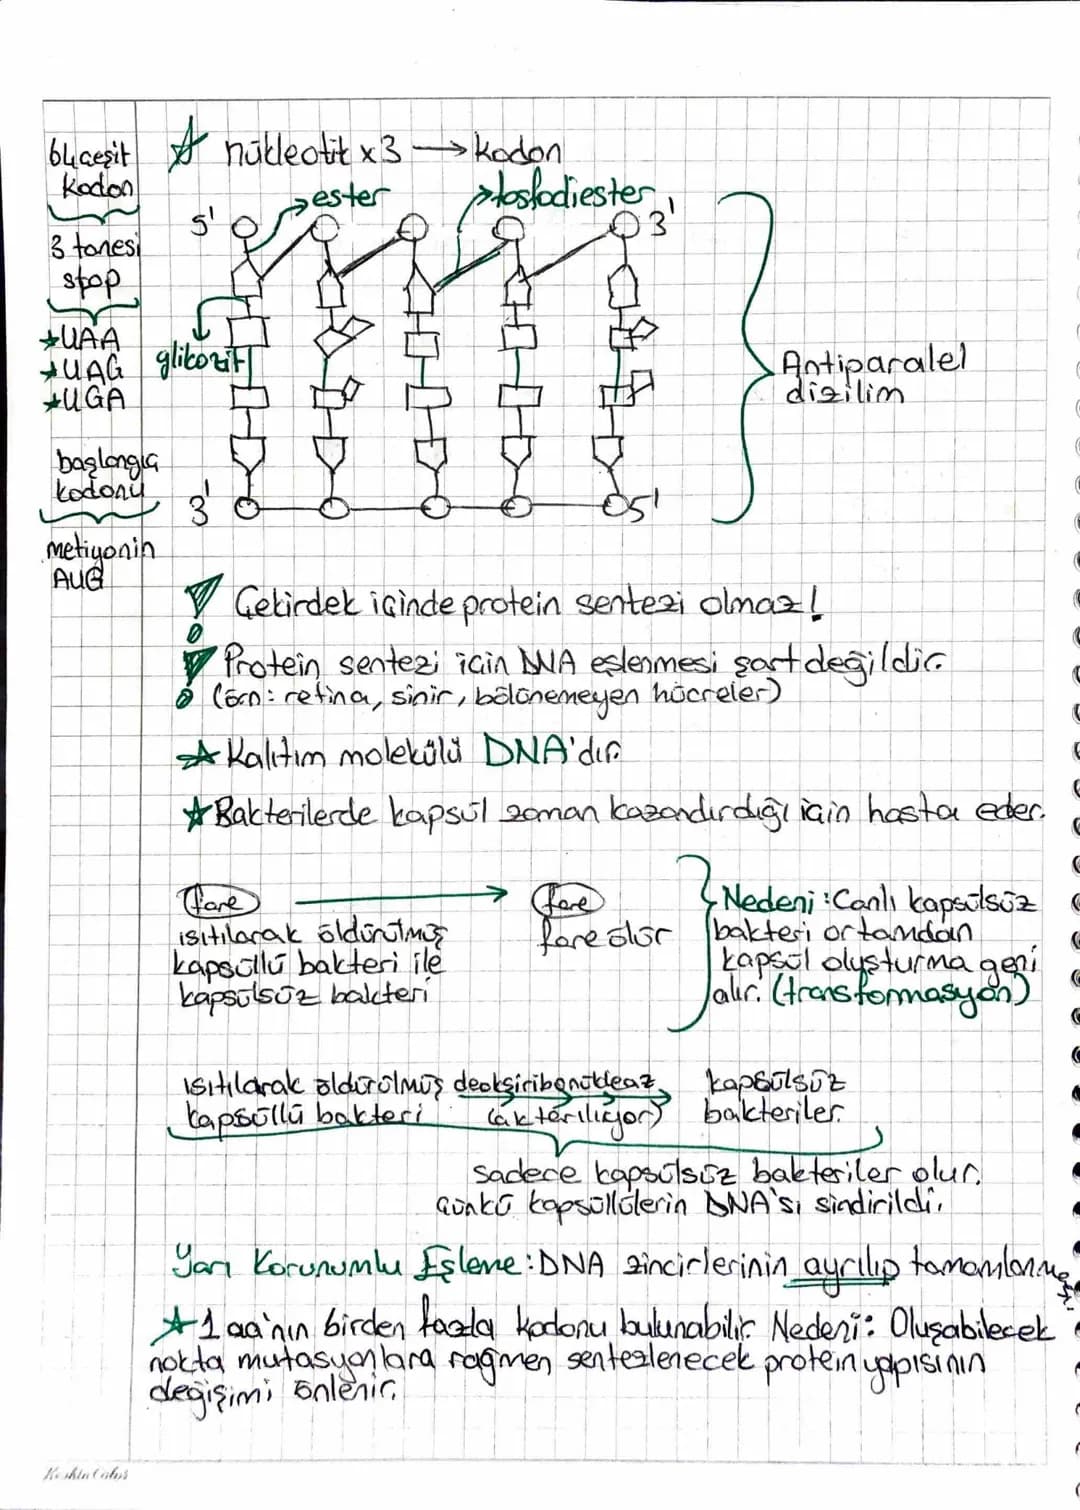 64 çeşit
kodon
3 tanesi
stop
★UAA
★UAG
★UGA
başlangıç
kodonu
metiyonin
AUG
☆ nükleotit x 3 → kodon
ester
fosfodiester
5'
3'
glikozit
3'
5'
Antiparalel
dizilim
Çekirdek içinde protein sentezi olmaz!
Protein sentezi için DNA eşlenmesi şart değildir.
(örn: retina, sinir, bölünemeyen hücreler)
☆ Kalıtım molekülü DNA'dır.
☆ Bakterilerde kapsül zaman kazandırdığı için hasta eder.
fare → fare
ısıtılarak öldürülmüş
kapsüllü bakteri ile
kapsülsüz bakteri
fare ölür
Nedeni: Canlı kapsülsüz
bakteri ortamdan
kapsül oluşturma geni
alır. (transformasyon)
ısıtılarak öldürülmüş deoksiribonükleaz kapsülsüz
kapsüllü bakteri (aktarılıyor) bakteriler
sadece kapsülsüz bakteriler olur.
Çünkü kapsüllülerin DNA'sı sindirildi.
Yarı Korunumlu Eşleme: DNA zincirlerinin ayrılıp tamamlanması.
☆ 1 aa'nın birden fazla kodonu bulunabilir. Nedeni: Oluşabilecek
nokta mutasyonlara rağmen sentezlenecek protein yapısının
değişimi önlenir.